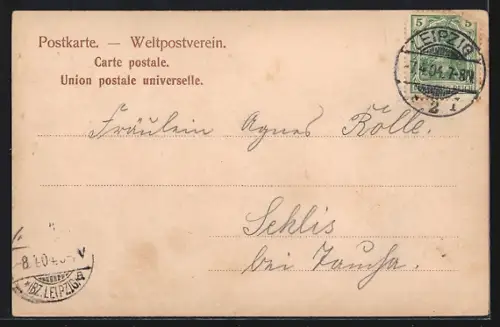 Postkarte. — Weltpostverein.
Carte postale.
Union postale universelle.
5 5
LEIPZIG
7.4.04. 7-8 V
2
Fräulein Agnes Kolle.
Sehlis
bei Taucha.
8.
(BZ. LEIPZIG)